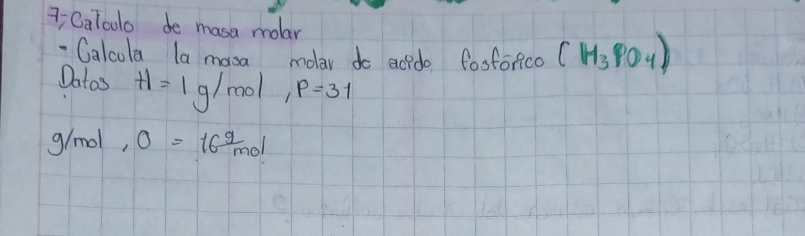 7; Calculo de masa molar
- Calcula la masa molar do acido fosfórico (H3PO4)
Datos H = 1 g/mol, P=31
g/mol, O = 16 g/mol